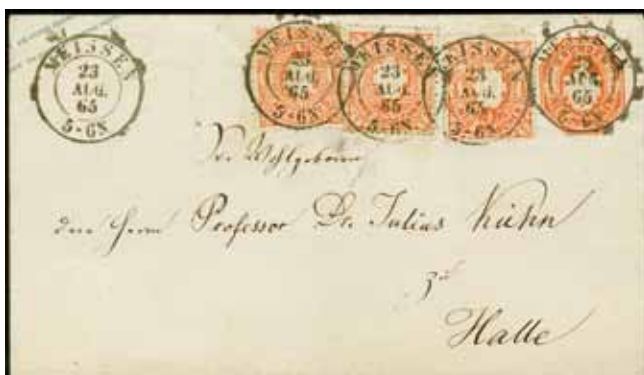 MEISSEN
23
AUG.
65
5-6N
MEISSEN
23
AUG.
65
5-6N
MEISSEN
23
AUG.
65
5-6N
MEISSEN
23
AUG.
65
5-6N
MEISSEN
23
AUG.
65
5-6N
Sr. Wohlgeboren
dem Herrn Professor Dr. Julius Kühn
zu
Halle